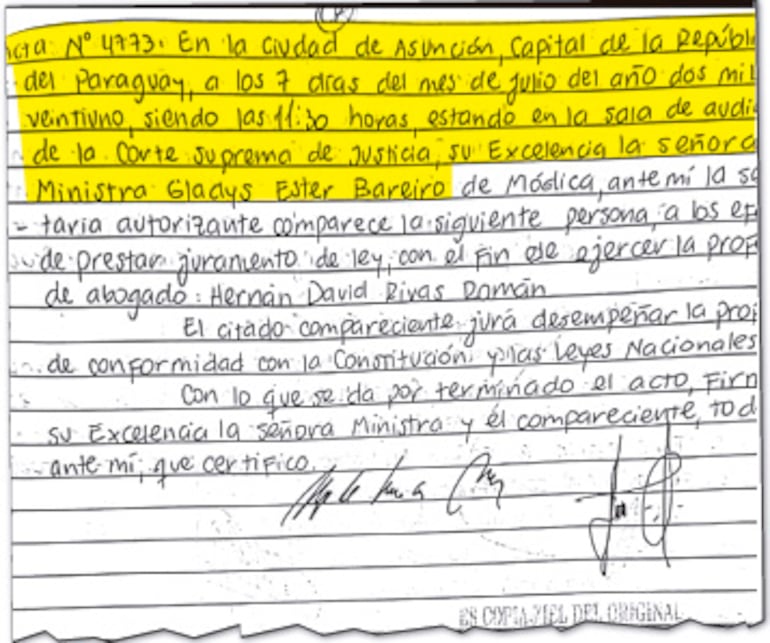 Acta: Nº 4773. En la ciudad de Asunción, Capital de la Repúbl
del Paraguay, a los 7 días del mes de julio del año dos mil
veintiuno, siendo las 11:30 horas, estando en la sala de audi
de la Corte Suprema de Justicia, su Excelencia la señora
Ministra Gladys Ester Bareiro de Módica, ante mí la se
taria autorizante comparece la siguiente persona, a los ef
de prestar juramento de ley, con el fin de ejercer la prof
de abogado: Hernán David Rivas Román
El citado compareciente jura desempeñar la prof
de conformidad con la Constitución y las Leyes Nacionales
Con lo que se da por terminado el acto, Firm
su Excelencia la señora Ministra y el compareciente, tod
ante mí, que certifico.
ES COPIA FIEL DEL ORIGINAL